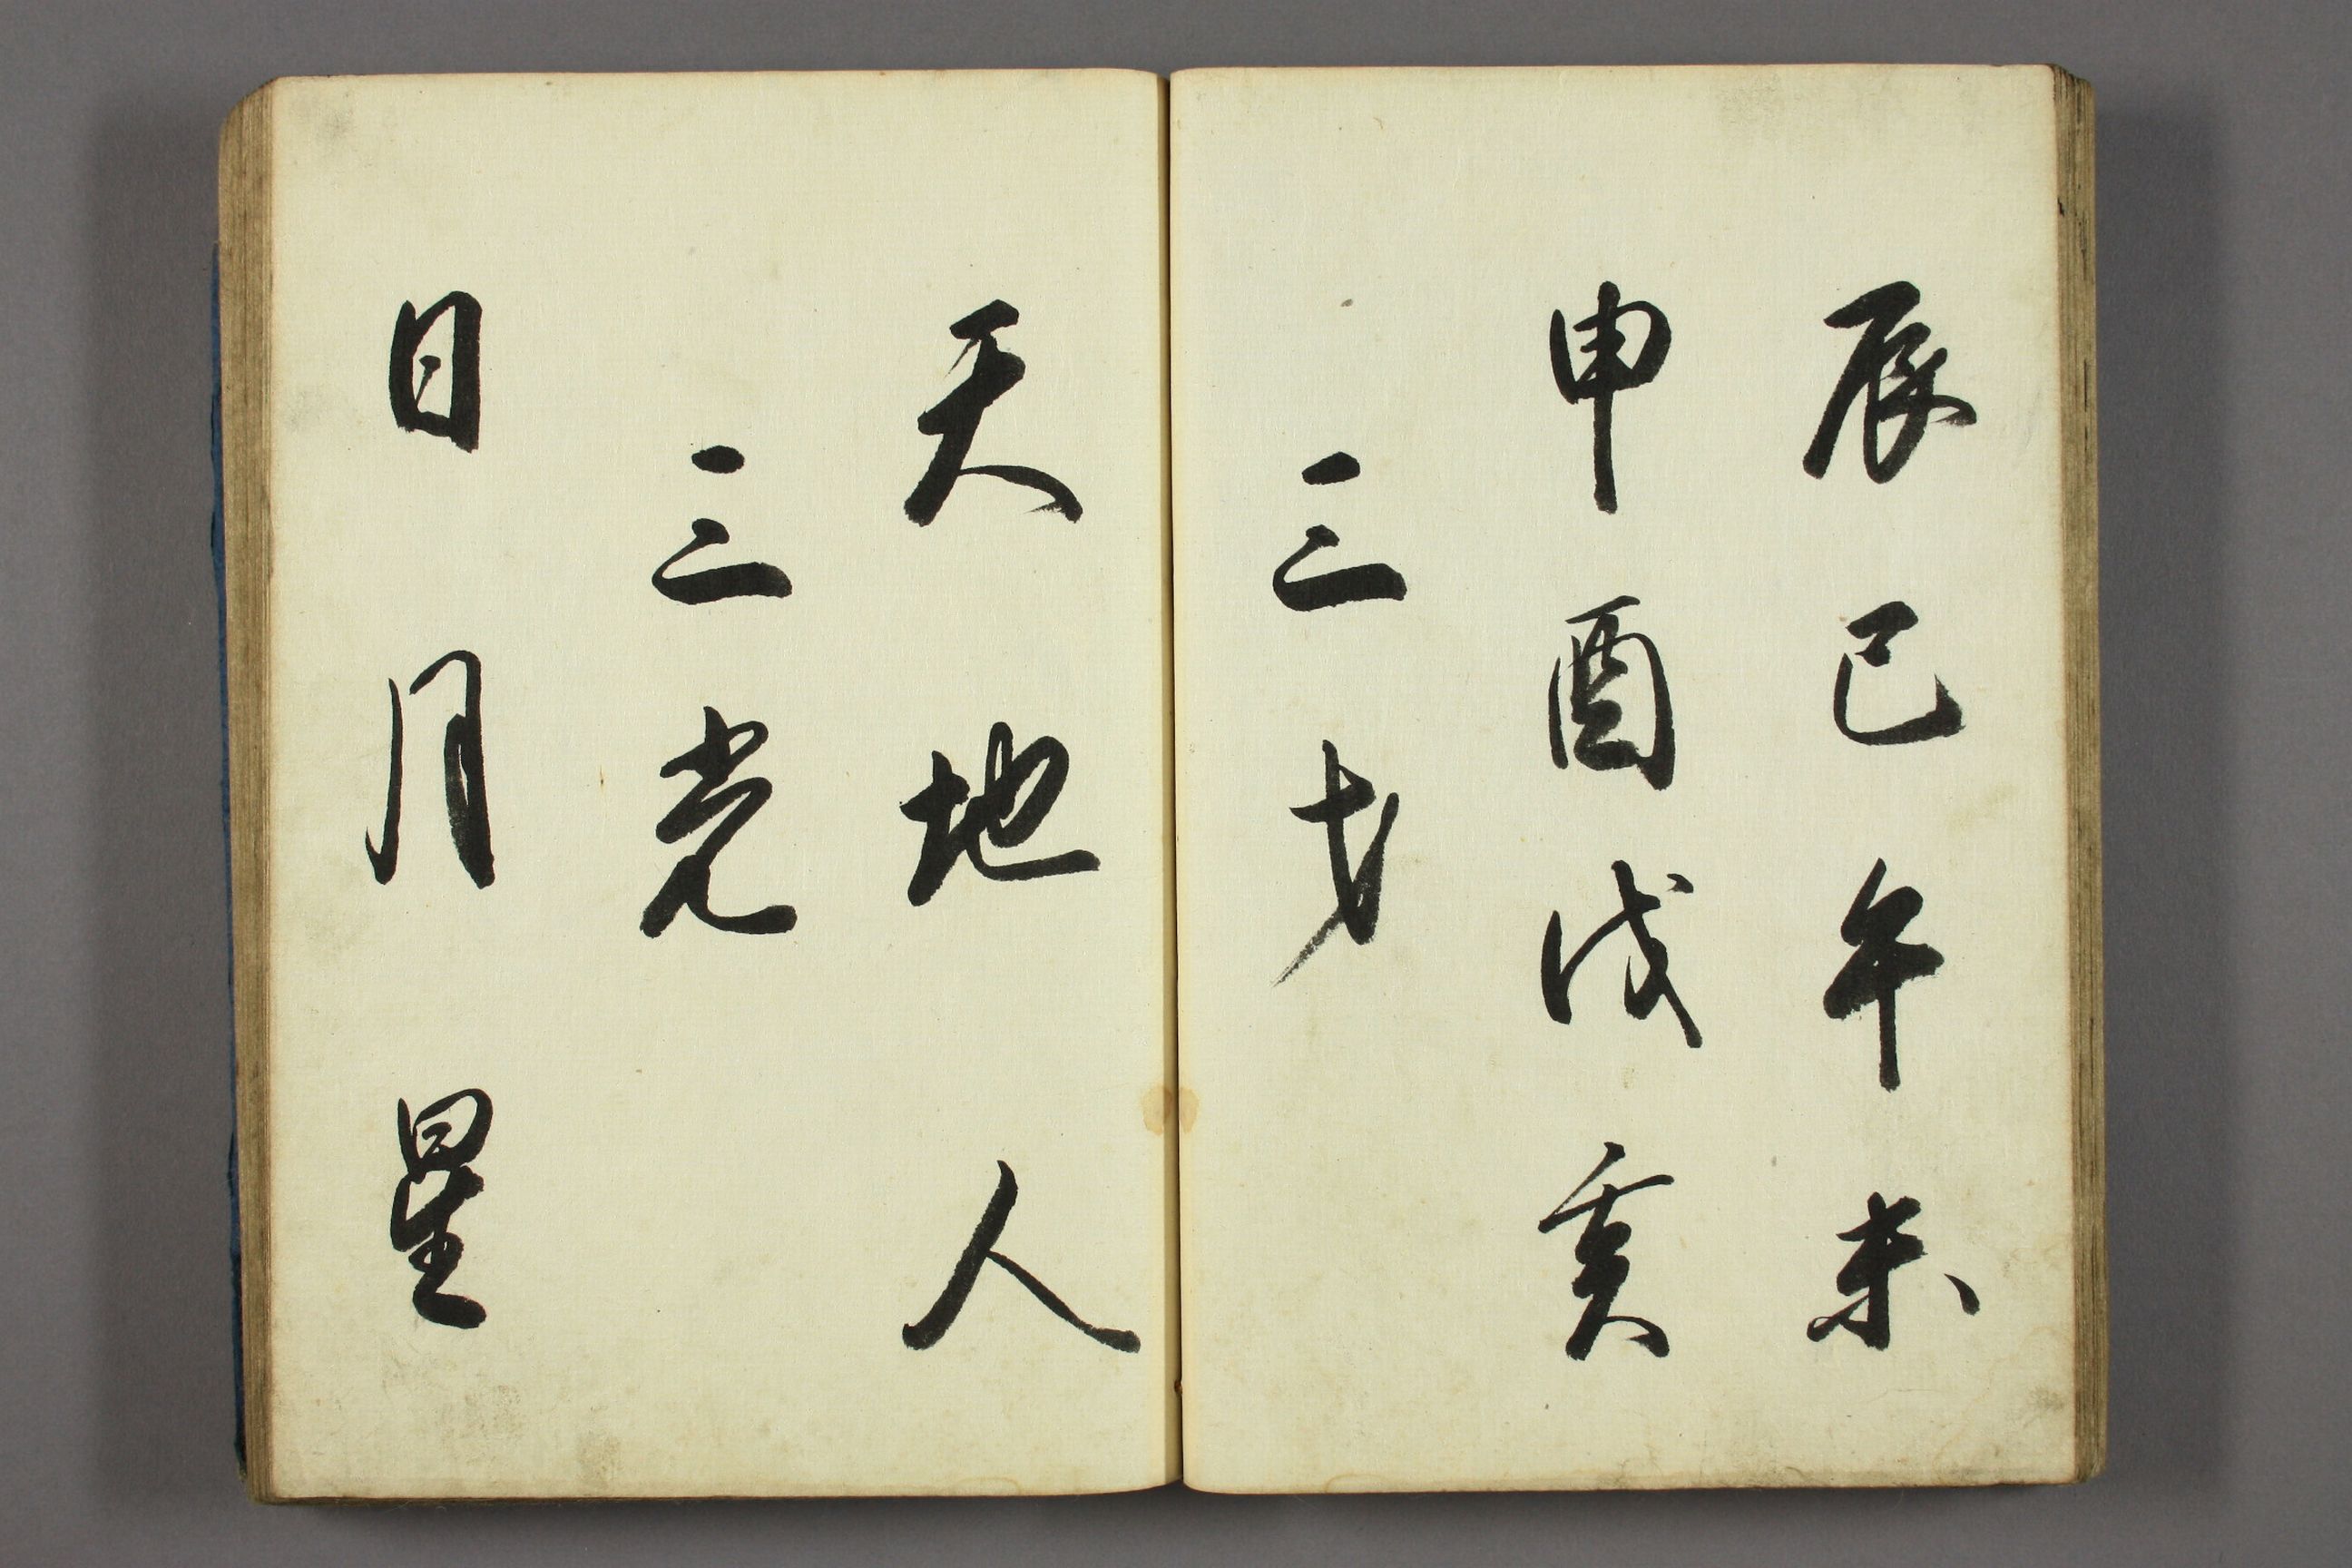 辰巳午未
申酉戌亥
三才
天地人
三光
日月星